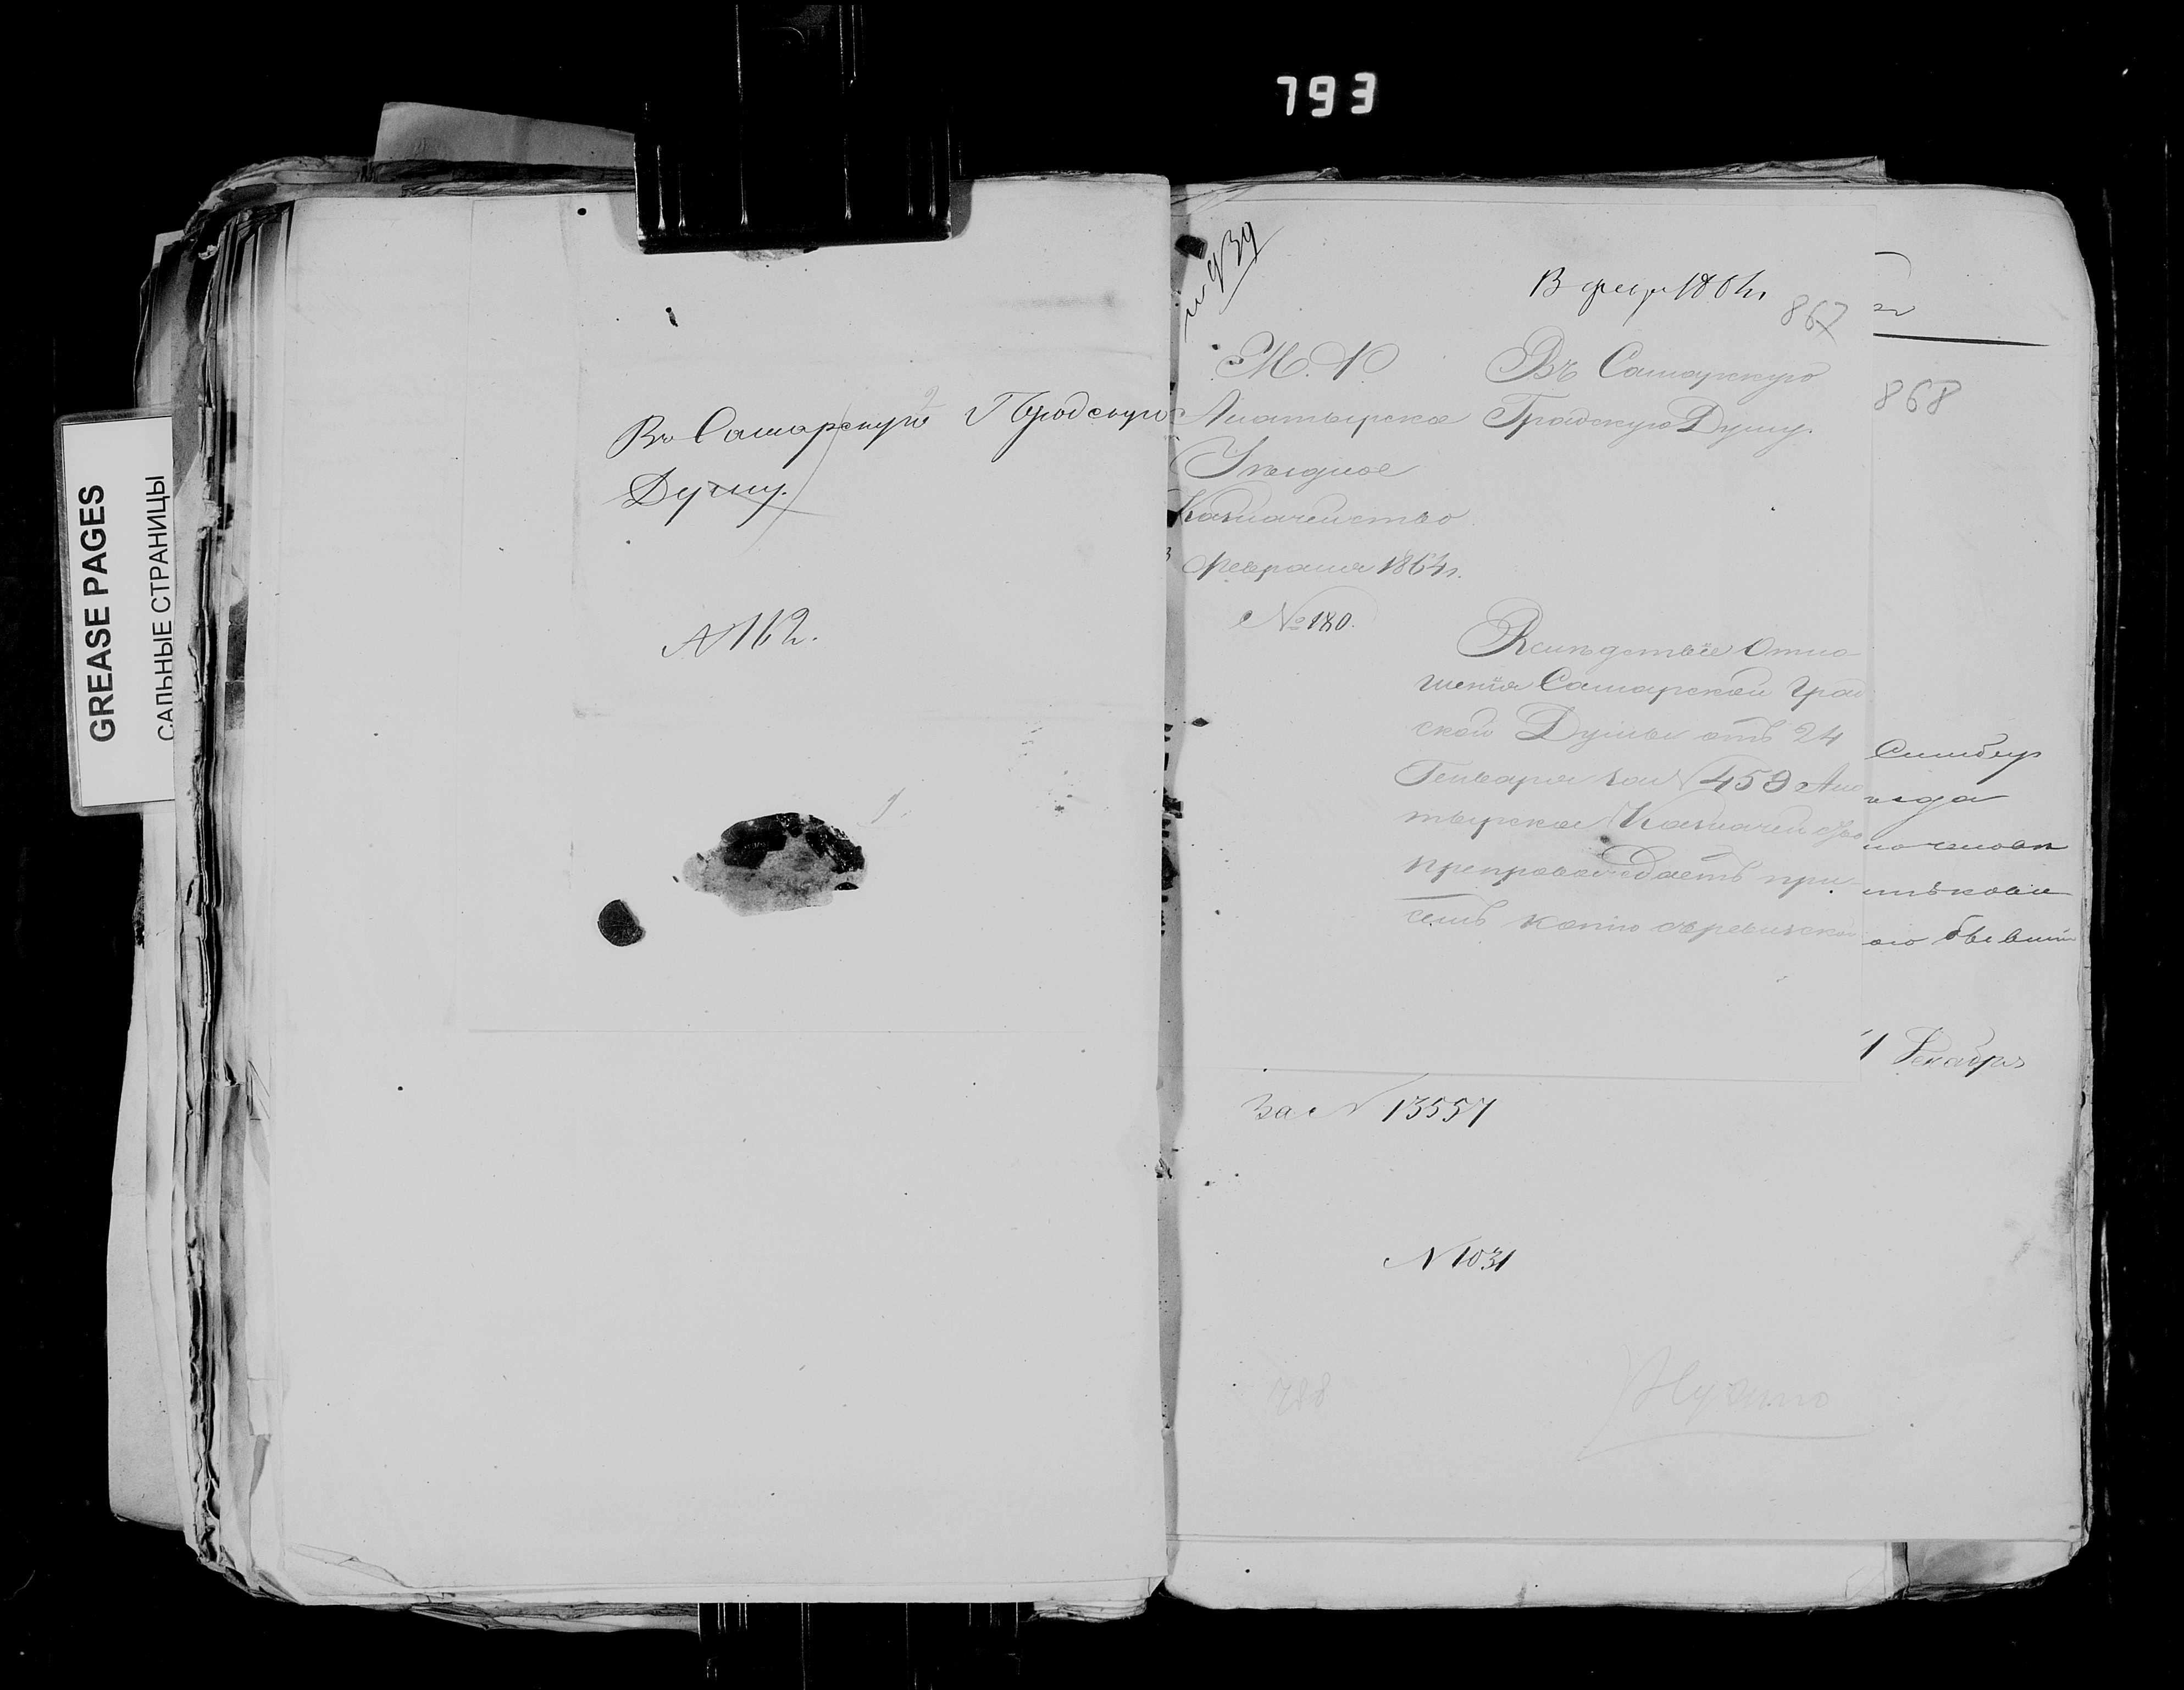 793
GREASE PAGES
САЛЬНЫЕ СТРАНИЦЫ
Въ Самарскую Городскую
Думу.
№ 112.
№ 939
13 февр 1864 г.
867
М. Ф.
Алатырское
Уѣздное
Казначейство
3 февраля 1864 г.
№ 180.
Въ Самарскую
Градскую Думу.
Вслѣдствіе Отно-
шенія Самарской Град
ской Думы отъ 24
Генваря за № 459 Ала
тырское Казначейство
препровождаетъ при
семъ копію съ ревизской
868
Симбир
ѣзда
бывшій
1 Декабря
За № 13557
№ 1031
788
Нужно